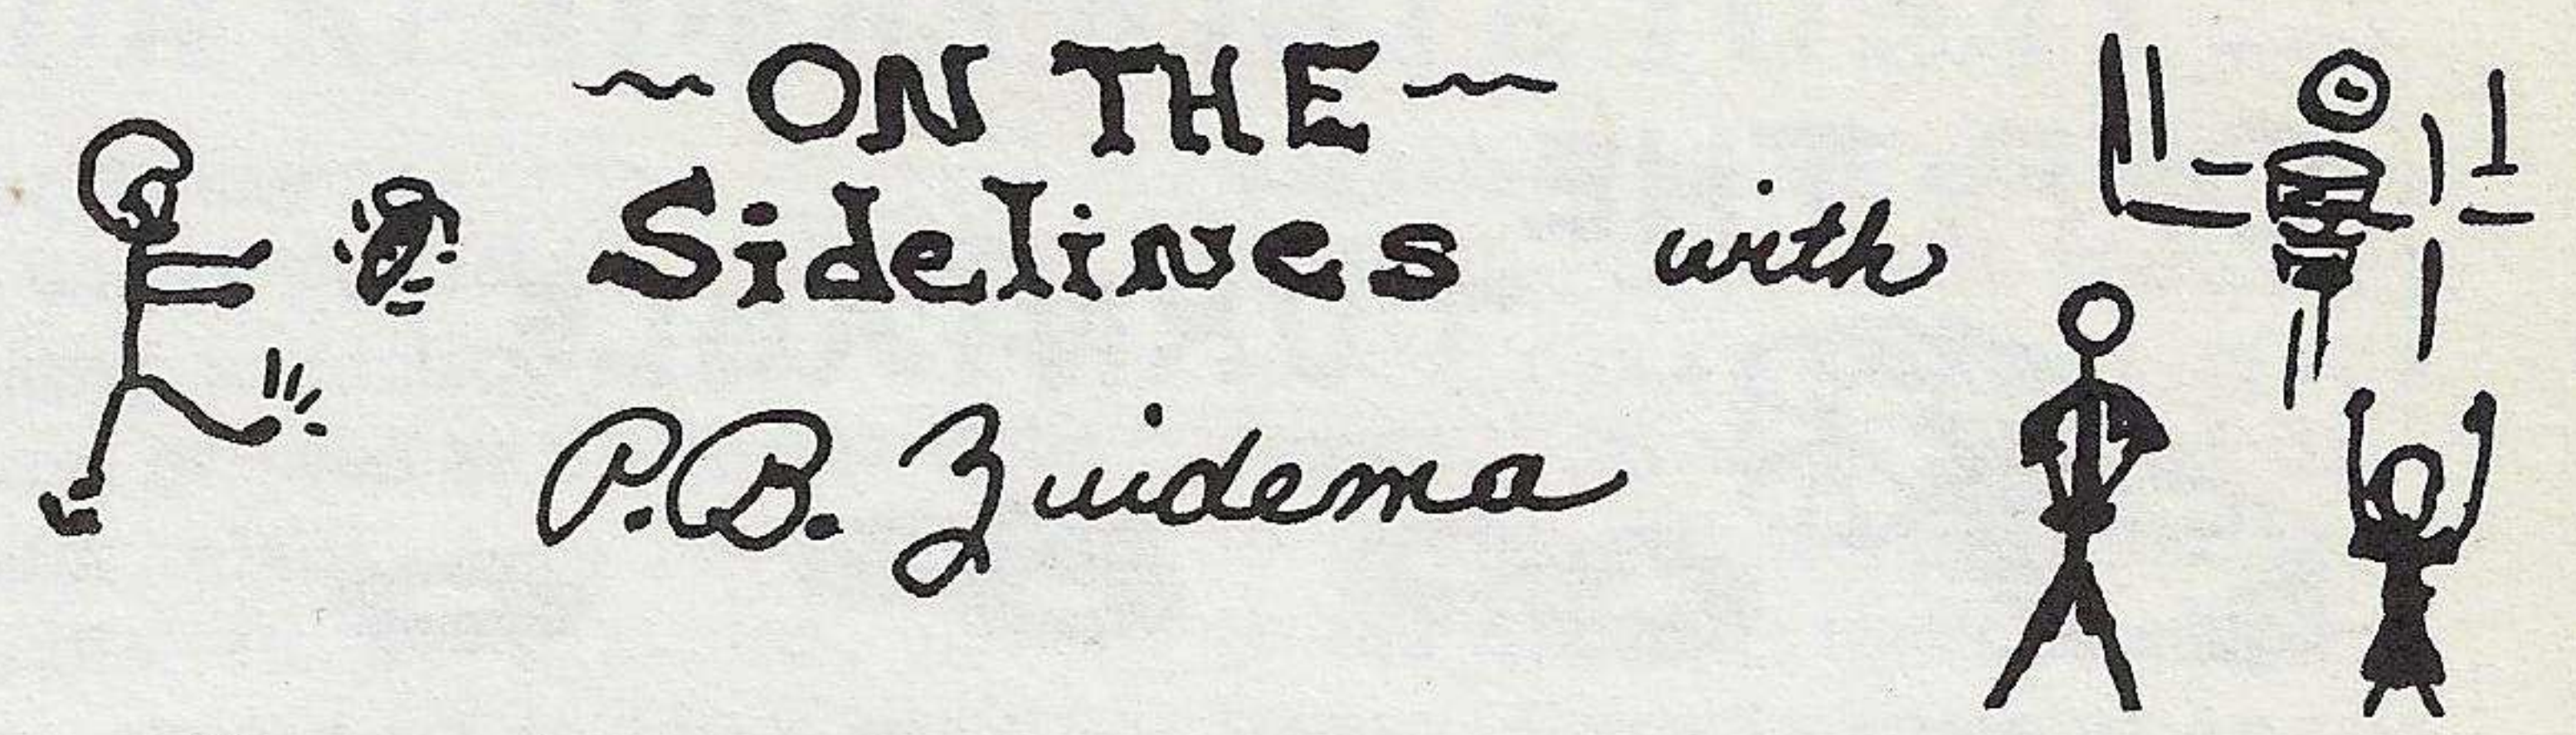 ~ ON THE ~
Sidelines with
P.B. Zuidema